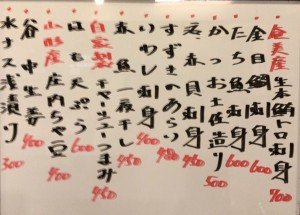 奄美産 生本鮪トロ刺身
金目鯛刺身 600
たち魚刺身 600
かつお土佐造り 500
貝刺身 450
すずきのあらい 450
いわし刺身 400
赤魚一夜干し 450
自家製 チャーシューつまみ 450
はも天ぷら 600
山形産 庄内ちゃ豆 400
谷中生姜 400
水ナス浅漬り 300